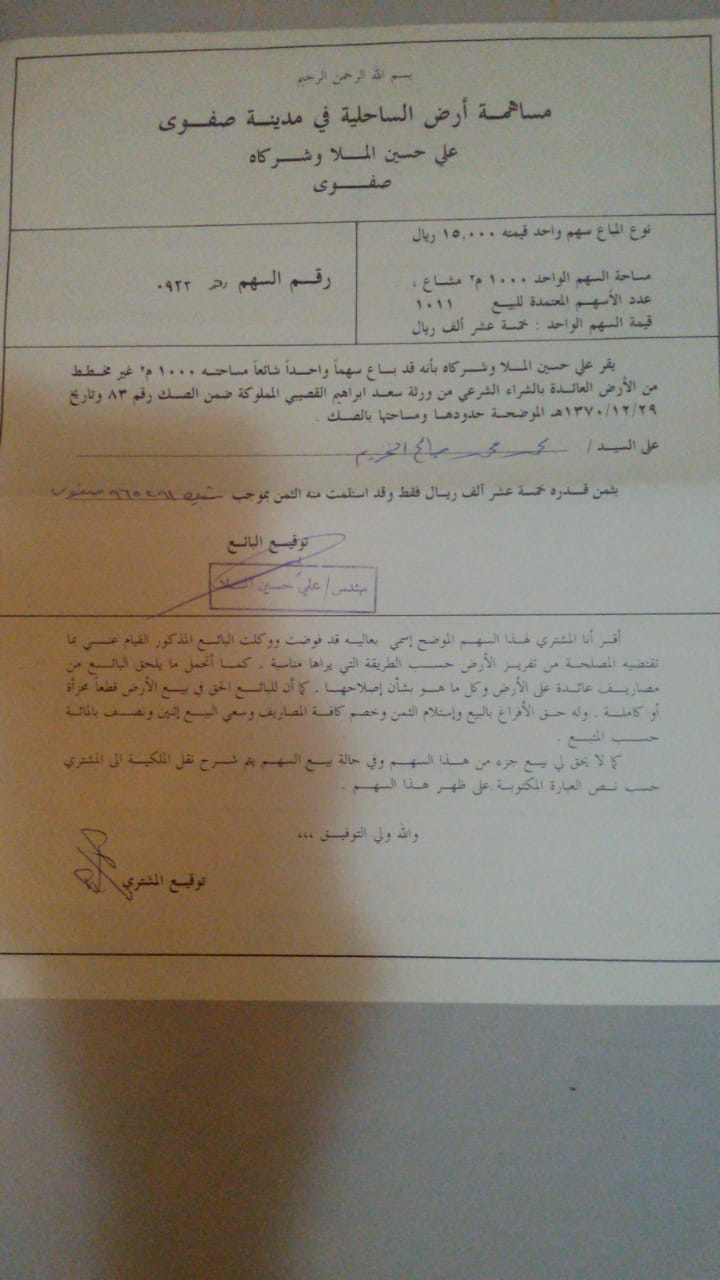 بسم الله الرحمن الرحيم
مساهمة أرض الساحلية في مدينة صفوى
علي حسين الملا وشركاه
صفوى
نوع المباع سهم واحد قيمته ١٥,٠٠٠ ريال
مساحة السهم الواحد ١٠٠٠ م٢ مشاع ،
عدد الأسهم المعتمدة للبيع ١٠١١
قيمة السهم الواحد : خمسة عشر ألف ريال
رقم السهم رقم ٠٩٢٢
يقر علي حسين الملا وشركاه بأنه قد باع سهماً واحداً شائعاً مساحته ١٠٠٠ م٢ غير مخطط
من الأرض العائدة بالشراء الشرعي من ورثة سعد ابراهيم القصيبي المملوكة ضمن الصك رقم ٨٣ وتاريخ
١٣٧٠/١٢/٢٩هـ الموضحة حدودها ومساحتها بالصك .
على السيد / صالح
بثمن قدره خمسة عشر ألف ريال فقط وقد استلمت منه الثمن بموجب
توقيع البائع
مهندس / علي حسين الملا
أقر أنا المشتري لهذا السهم الموضح إسمي بعاليه قد فوضت ووكلت البائع المذكور القيام عني بما
تقتضيه المصلحة من تفريز الأرض حسب الطريقة التي يراها مناسبة . كما أتحمل ما يلحق البائع من
مصاريف عائدة على الأرض وكل ما هو بشأن إصلاحها . كما أن للبائع الحق في بيع الأرض قطعاً مجزأة
أو كاملة . وله حق الأفراغ بالبيع وإستلام الثمن وخصم كافة المصاريف وسعي البيع إثنين ونصف بالمائة
حسب المتبع .
كما لا يحق لي بيع جزء من هذا السهم وفي حالة بيع السهم يتم شرح نقل الملكية الى المشتري
حسب نص العبارة المكتوبة على ظهر هذا السهم .
والله ولي التوفيق ،،،
توقيع المشتري